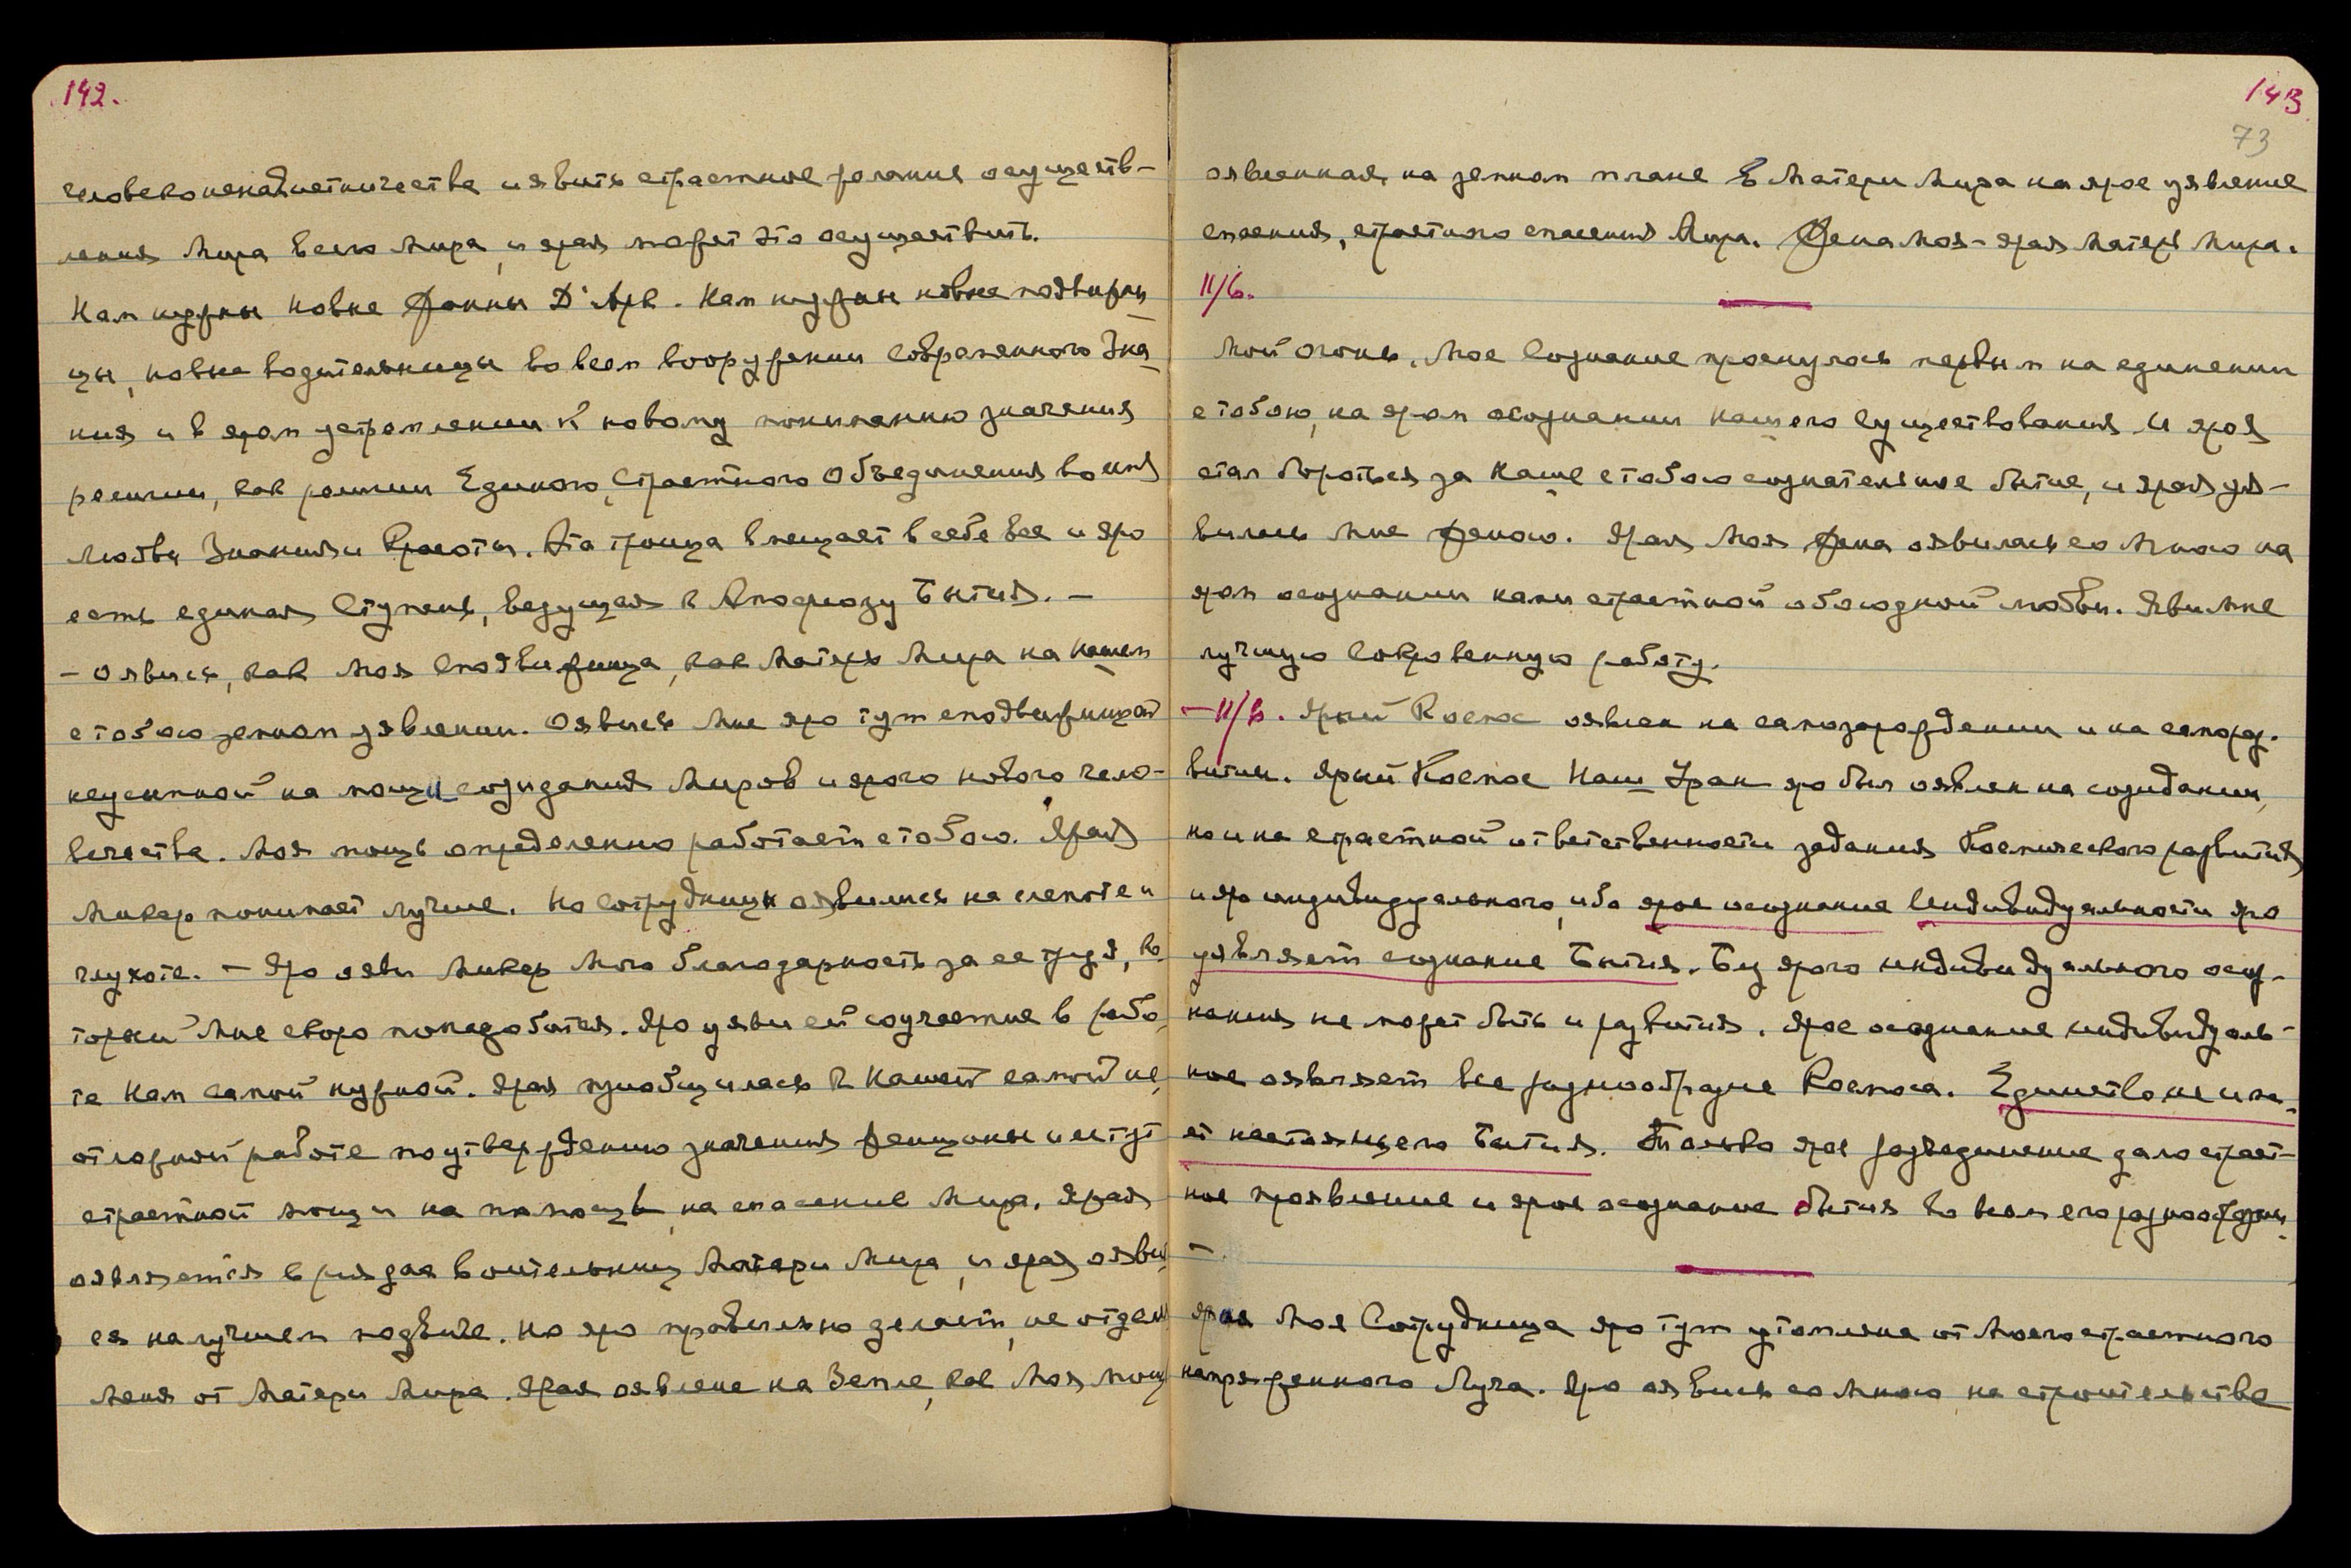 142.
человеконенавистничества и явить страстное желание осуществ-
ления Мира всего Мира, и ярая может это осуществить.
Нам нужны новые Жанны Д'Арк. Нам нужны новые подвижни-
цы, новые водительницы во всем вооружении современного Зна-
ния и в яром устремлении к новому пониманию значения
религии, как религии Единого, Страстного Объединения во имя
Любви Знания и Красоты. Эта троица вмещает в себе все и яро
есть единая Ступень, ведущая к Апофеозу Бытия. –
– Оявись, как Моя Сподвижница, как Матерь Мира на Нашем
с тобою земном уявлении. Оявись Мне яро тут сподвижницей
неусыпной на мощи созидания Миров и ярого нового чело-
вечества. Моя мощь определенно работает с тобою. Ярая
Инкер понимает лучше. Но Сотрудницы оявились на слепоте и
глухоте. – Яро яви Мою благодарность за ее труд, ко-
торый Мне скоро понадобится. Яро уяви ей соучастие в рабо-
те Нам самой нужной. Ярая приобщилась к Нашей самой не-
отложной работе по утверждению значения женщины и ее
страстной мощи на помощь, на спасение Мира. Ярая
оявляется в рядах воительниц Матери Мира, и ярая ояви
ся на лучшем подвиге. Но яро правильно делает, не отделя
Меня от Матери Мира. Ярая оявлена на Земле, как Моя мощь
143
73
оявленная, на земном плане в Матери Мира на ярое уявление
спасения, страстного спасения Мира. Жена Моя – ярая Матерь Мира.
11/6.
Мой огонь, Мое Сознание проснулось первым на единении
с тобою, на яром осознании нашего существования. И ярый
стал бороться за Наше с тобою сознательное бытие, и ярая уя-
вилась Мне женою. Ярая Моя Жена оявилась со Мною на
яром осознании нами страстной обоюдной любви. Яви Мне
лучшую сокровенную работу.
– 11/6. Ярый Космос оявлен на самозарождении и на самораз-
витии. Ярый Космос Наш Уран яро был оявлен на созидании,
но и на страстной ответственности задания Космического развития
и яро индивидуального, ибо ярое осознание Индивидуальности яро
уявляет сознание Бытия. Без ярого индивидуального осоз-
нания не может быть и развития. Ярое осознание индивидуаль-
ное оявляет все разнообразие Космоса. Единство не име-
ет настоящего Бытия. Только ярое разъединение дало страст-
ное проявление и ярое осознание бытия во всем его разнообразии
–
Ярая Моя Сотрудница яро тут утомлена от Моего страстного
напряженного Луча. Яро оявись со Мною на строительстве